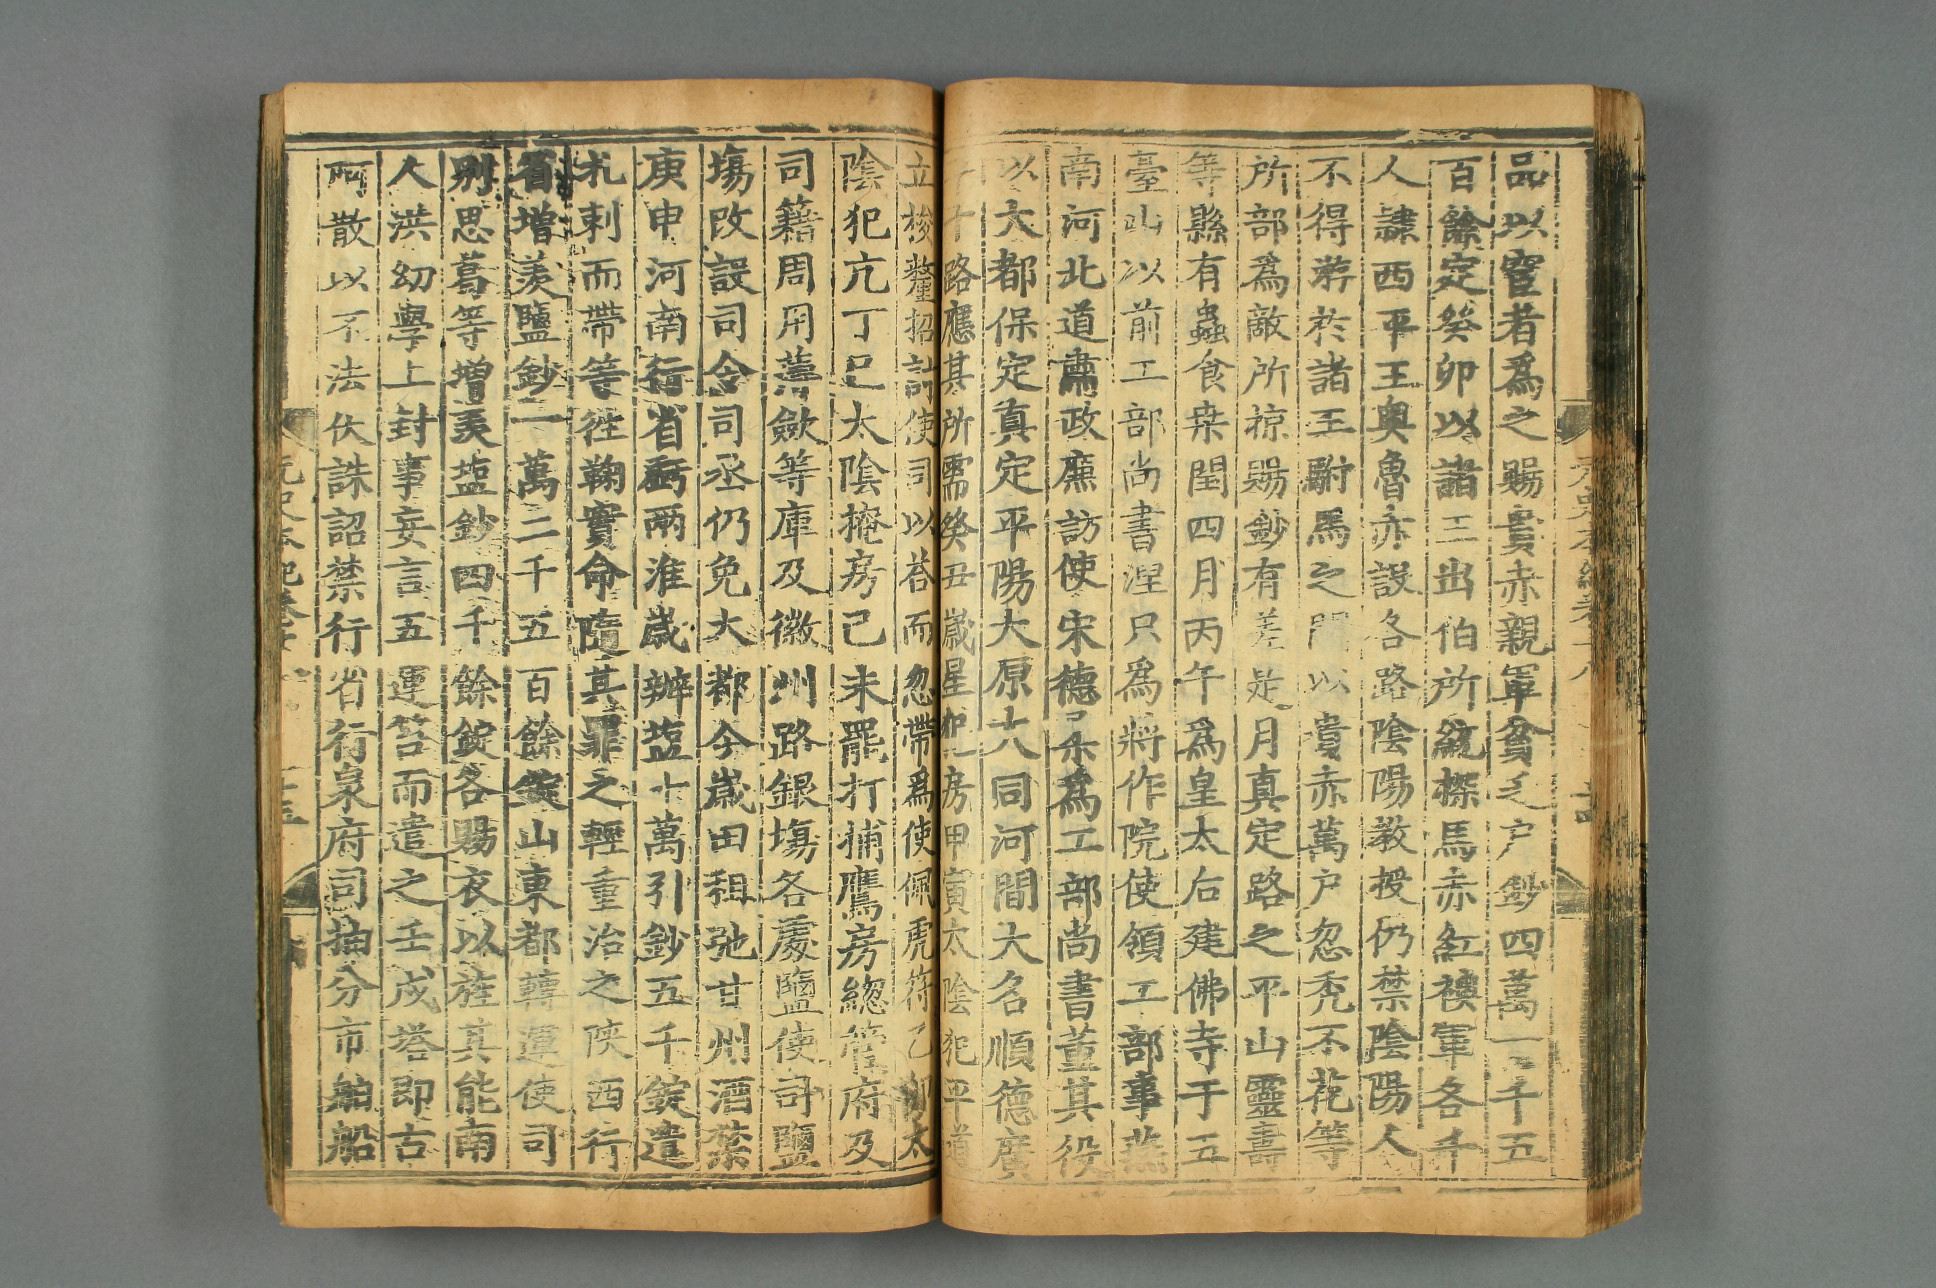 品以宦者爲之賜貴赤親軍貧乏户鈔四萬一千五
百餘定癸卯以諸王出伯所統探馬赤紅襖軍各千
人隷西平王奥魯赤設各路陰陽教授仍禁陰陽人
不得游於諸王駙馬之門以貴赤萬户忽秃不花等
所部爲敵所掠賜鈔有差是月真定路之平山靈壽
等縣有蟲食桒閏四月丙午爲皇太后建佛寺于五
臺山以前工部尚書涅只爲將作院使領工部事燕
南河北道肅政廉訪使宋德柔爲工部尚書董其役
以大都保定真定平陽太原大同河間大名順德廣
平十路應其所需癸丑歲星犯房甲寅太陰犯平道
立梭釐招討使司以荅而忽帶爲使佩虎符乙卯太
陰犯亢丁巳太陰掩房己未罷打捕鷹房總管府及
司籍周用薄斂等庫及徽州路銀塲各處鹽使司鹽
塲改設司令司丞仍免大都今歲田租弛甘州酒禁
庚申河南行省虧兩淮歲辦塩十萬引鈔五千錠遣
朮剌而帶等徃鞫實命隨其罪之輕重治之陝西行
省增羨鹽鈔一萬二千五百餘錠山東都轉運使司
別思葛等增羡塩鈔四千餘錠各賜衣以旌其能南
人洪幼學上封事妄言五運笞而遣之壬戌塔即古
阿散以不法伏誅詔禁行省行泉府司抽分市舶船